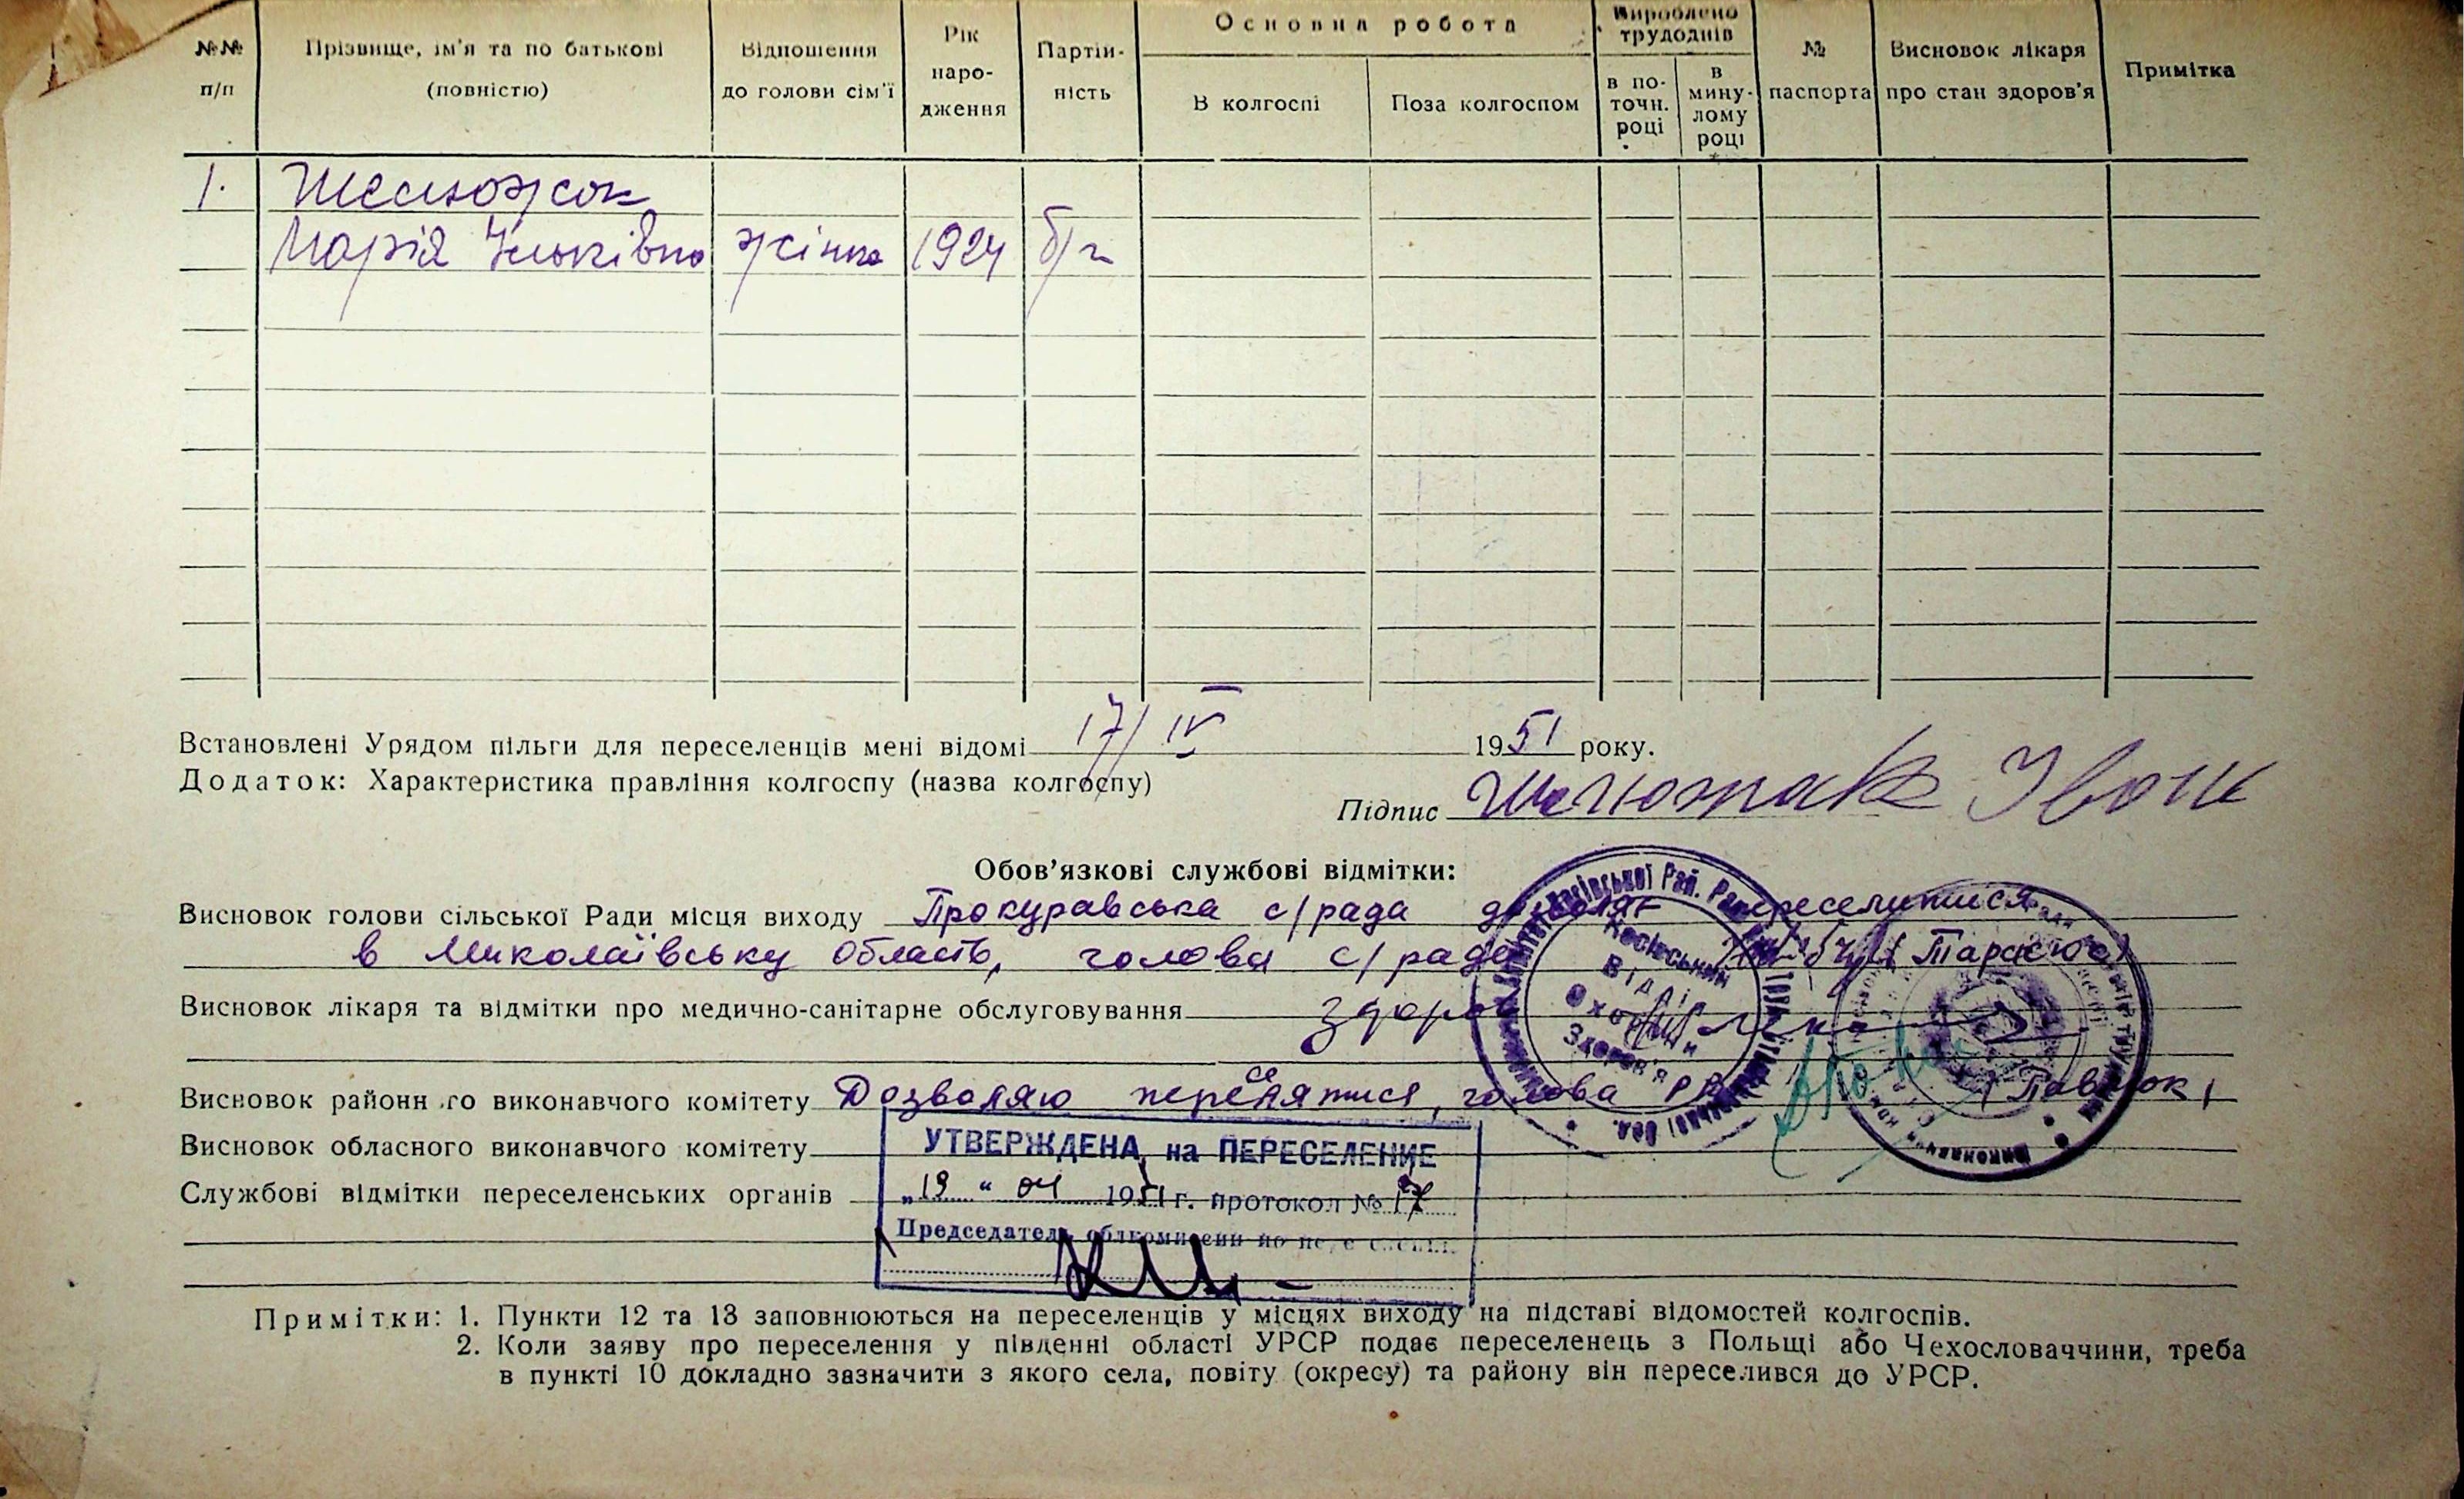 №№ п/п Прізвище, ім'я та по батькові (повністю) Відношення до голови сім'ї Рік народження Партійність Основна робота В колгоспі Поза колгоспом Вироблено трудоднів в поточн. році в минулому році № паспорта Висновок лікаря про стан здоров'я Примітка
1.
Марія жінка 1924 б/п
Встановлені Урядом пільги для переселенців мені відомі 17/IV 1951 року.
Додаток: Характеристика правління колгоспу (назва колгоспу)
Підпис Шелюжак Іван
Обов'язкові службові відмітки:
Висновок голови сільської Ради місця виходу Прокуравська с/рада дозволяє переселитися
в Миколаївську область, голова с/ради Тарасюк
Висновок лікаря та відмітки про медично-санітарне обслуговування здоров
Косівський
Відділ
Охорони
Здоров'я
Висновок районного виконавчого комітету Дозволяю переселятися, голова Павлюк
Висновок обласного виконавчого комітету
УТВЕРЖДЕНА на ПЕРЕСЕЛЕНИЕ
Службові відмітки переселенських органів
„19" 04 1951 г. протокол № 17
Председатель облкомиссии по
Примітки: 1. Пункти 12 та 13 заповнюються на переселенців у місцях виходу на підставі відомостей колгоспів.
2. Коли заяву про переселення у південні області УРСР подає переселенець з Польщі або Чехословаччини, треба
в пункті 10 докладно зазначити з якого села, повіту (окресу) та району він переселився до УРСР.